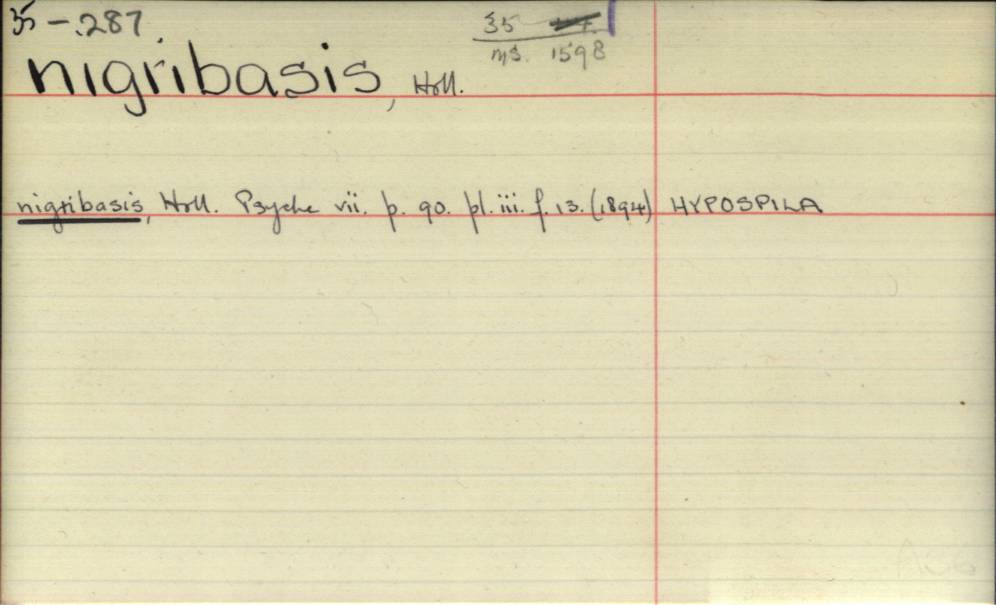 35 – .287.
35
ms. 1598
nigribasis, Holl.
nigribasis, Holl. Psyche vii. p. 90. pl. iii. f. 13. (1894) HYPOSPILA